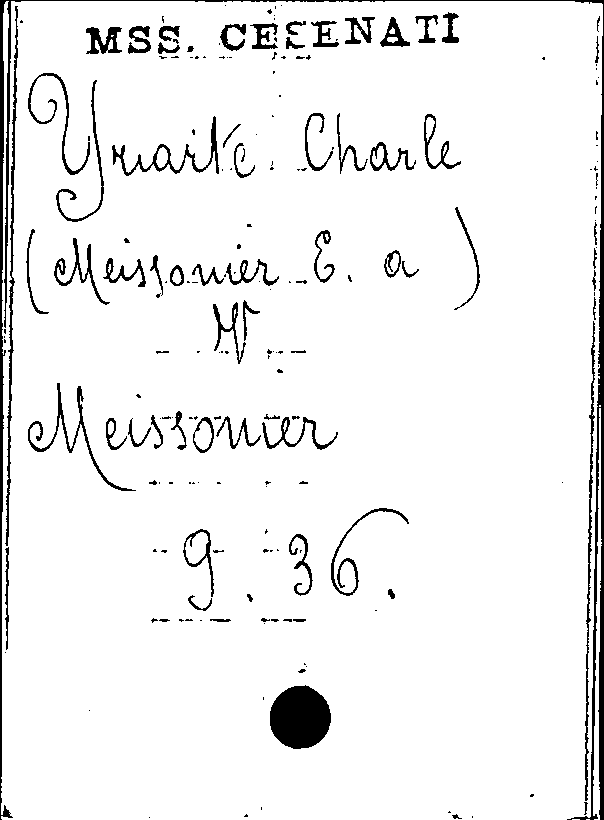 MSS. CESENATI
Yriarte Charle
(Meissonier E. a)
V
Meissonier
9.36.